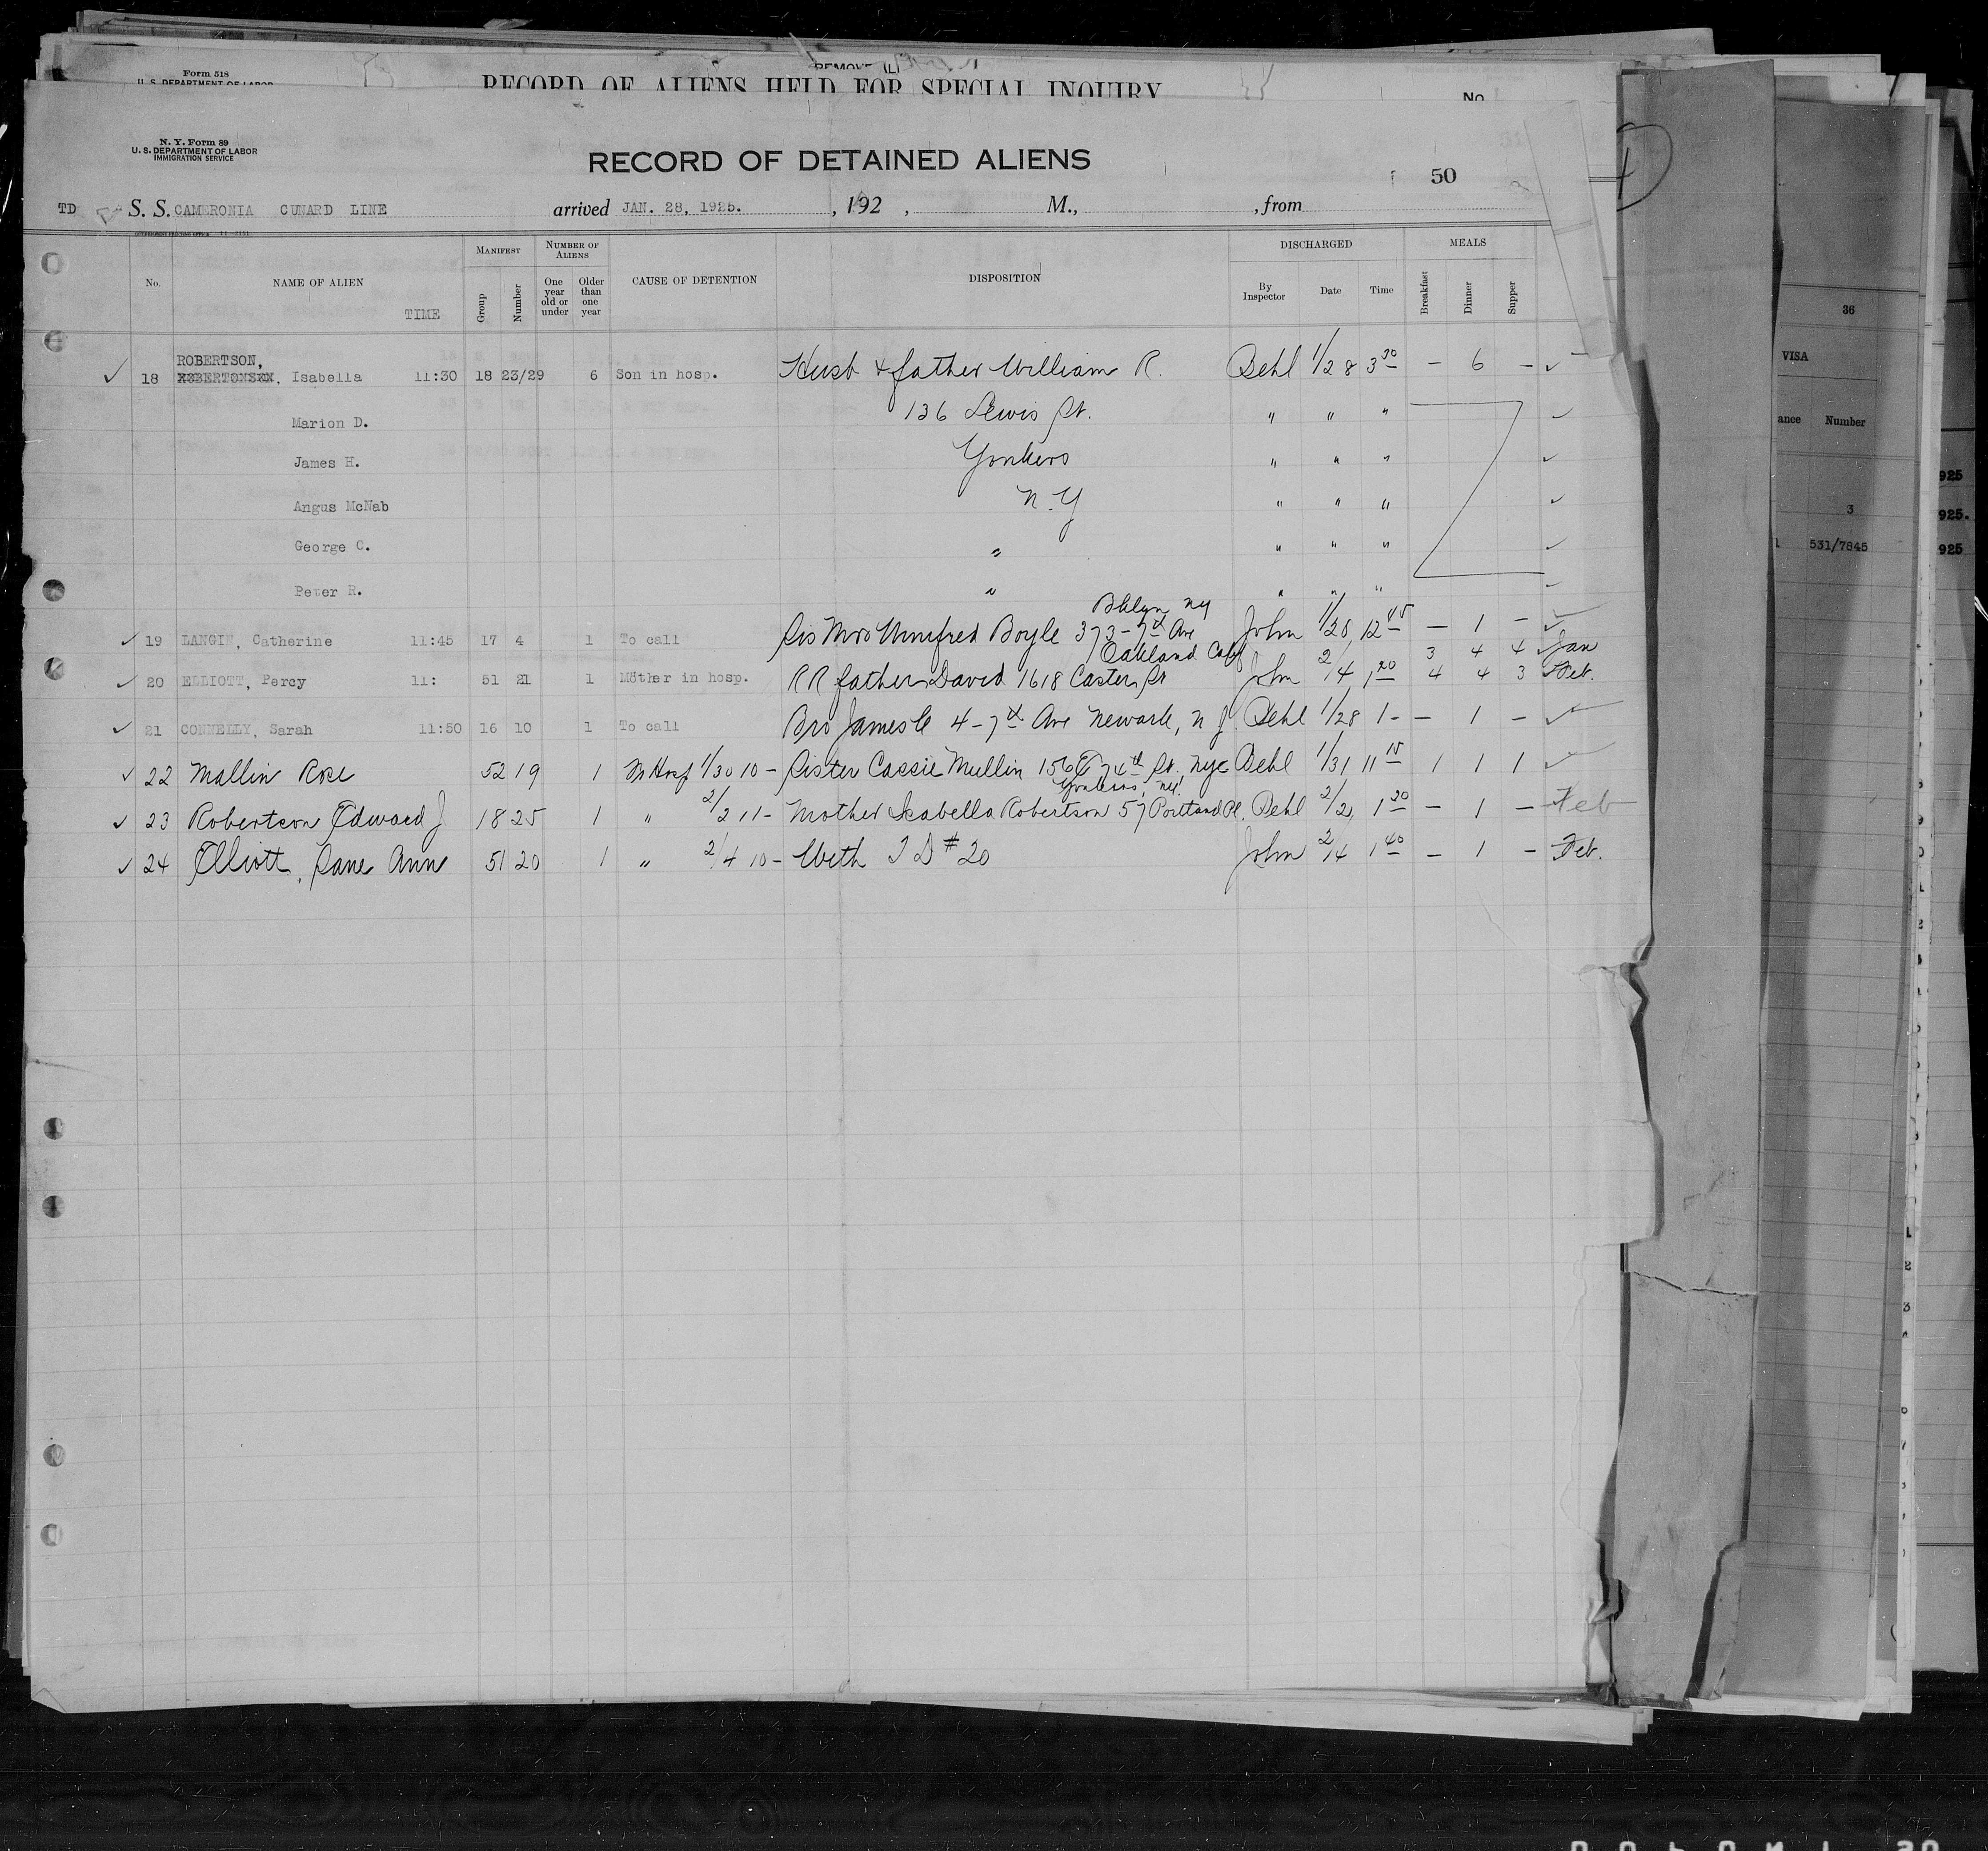 Form 518
U. S. DEPARTMENT OF LABOR
RECORD OF ALIENS HELD FOR SPECIAL INQUIRY
No.
N. Y. Form 89
U. S. DEPARTMENT OF LABOR
IMMIGRATION SERVICE
RECORD OF DETAINED ALIENS
50
TD S. S. CAMERONIA CUNARD LINE arrived JAN. 28, 1925. , 192 , M., , from
No. NAME OF ALIEN TIME MANIFEST Group Number NUMBER OF ALIENS One year old or under Older than one year CAUSE OF DETENTION DISPOSITION DISCHARGED By Inspector Date Time MEALS Breakfast Dinner Supper
ROBERTSON,
18 Isabella 11:30 18 23/29 6 Son in hosp. Husb & father William R. Behl 1/28 3 30 — 6 —
Marion D. 136 Lewis St. " " "
James H. Yonkers " " "
Angus McNab N.Y " " "
George C. " " " "
Peter R. " " " "
Bklyn NY
19 LANGIN, Catherine 11:45 17 4 1 To call Sis Mrs Winifred Boyle 373 - 7th Ave John 1/28 12 45 — 1 —
Oakland Calif 3 4 4 Jan
20 ELLIOTT, Percy 11: 51 21 1 Mother in hosp. RR father David 1618 Caster St John 2/4 1 20 4 4 3 Feb.
21 CONNELLY, Sarah 11:50 16 10 1 To call Bro James C 4 - 7th Ave Newark, N J. Behl 1/28 1 - — 1 —
22 Mallin Rose 52 19 1 In Hosp 1/30 10 - Sister Cassie Mullin 156 E 74th St. NYC Behl 1/31 11 15 1 1 1
Yonkers, NY.
23 Robertson Edward J 18 25 1 " 2/2 11 - Mother Isabella Robertson 57 Portland Pl. Behl 2/2 1 20 — 1 — Feb
24 Elliott, Jane Ann 51 20 1 " 2/4 10 - With T D # 20 John 2/4 1 40 — 1 — Feb.
36
VISA
ance Number
3
531/7845
925
925.
925